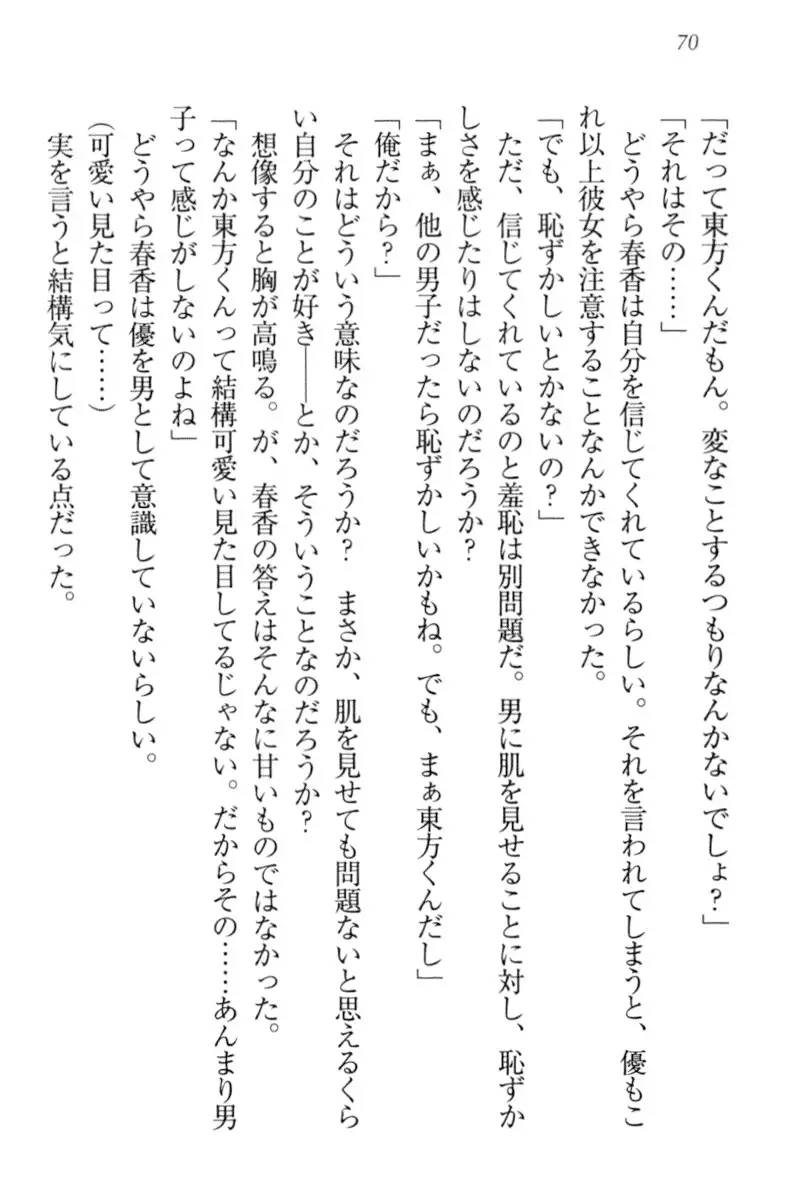 70
「だって東方くんだもん。変なことするつもりなんかないでしょ?」
「それはその……」
　どうやら春香は自分を信じてくれているらしい。それを言われてしまうと、優もこ
れ以上彼女を注意することなんかできなかった。
「でも、恥ずかしいとかないの?」
　ただ、信じてくれているのと羞恥は別問題だ。男に肌を見せることに対し、恥ずか
しさを感じたりはしないのだろうか?
「まぁ、他の男子だったら恥ずかしいかもね。でも、まぁ東方くんだし」
「俺だから?」
　それはどういう意味なのだろうか?　まさか、肌を見せても問題ないと思えるくら
い自分のことが好き――とか、そういうことなのだろうか?
　想像すると胸が高鳴る。が、春香の答えはそんなに甘いものではなかった。
「なんか東方くんって結構可愛い見た目してるじゃない。だからその……あんまり男
子って感じがしないのよね」
　どうやら春香は優を男として意識していないらしい。
(可愛い見た目って……)
　実を言うと結構気にしている点だった。